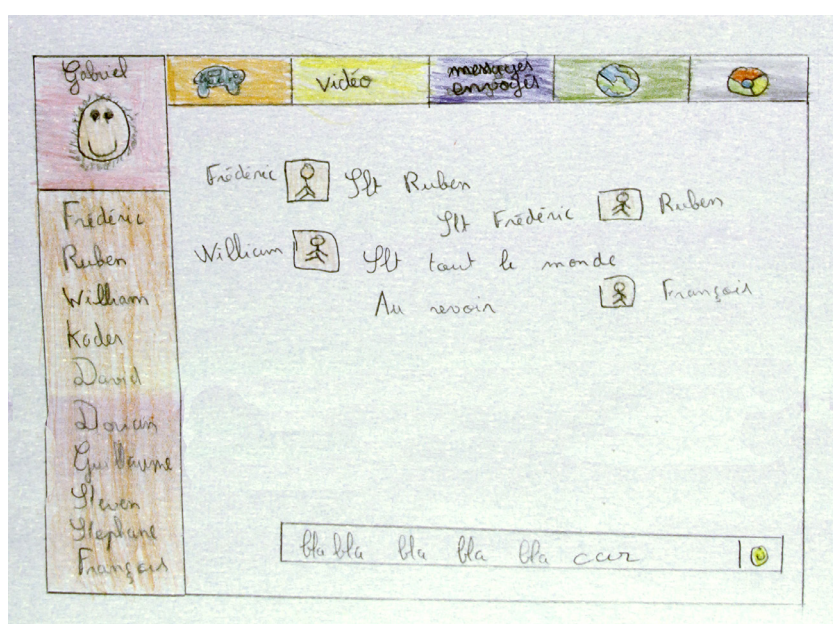 Gabriel
vidéo
messages
envoyés
Frédéric
Ruben
William
Kader
David
Dorian
Guillaume
Steven
Stephane
François
Frédéric Slt Ruben
Slt Frédéric Ruben
William Slt tout le monde
Au revoir François
bla bla bla bla bla car